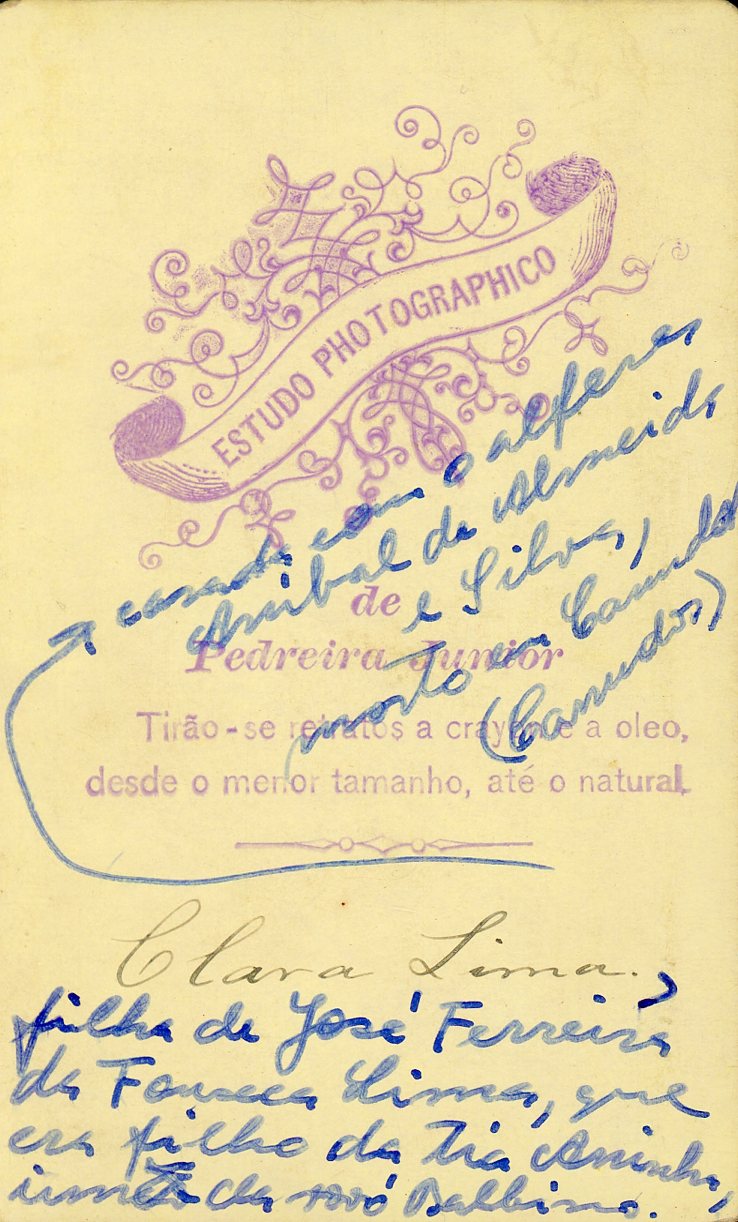 ESTUDO PHOTOGRAPHICO
de
Pedreira Junior
Tirão-se retratos a crayon e a oleo,
desde o menor tamanho, até o natural.
Clara Lima.,
filha de José Ferreira
da Fonseca Lima, que
era filho da tia Aninha,
irmã da vovó Balbina.
casada com o alferes
Anibal de Almeida
e Silva,
morto em Canudos
(Canudos)